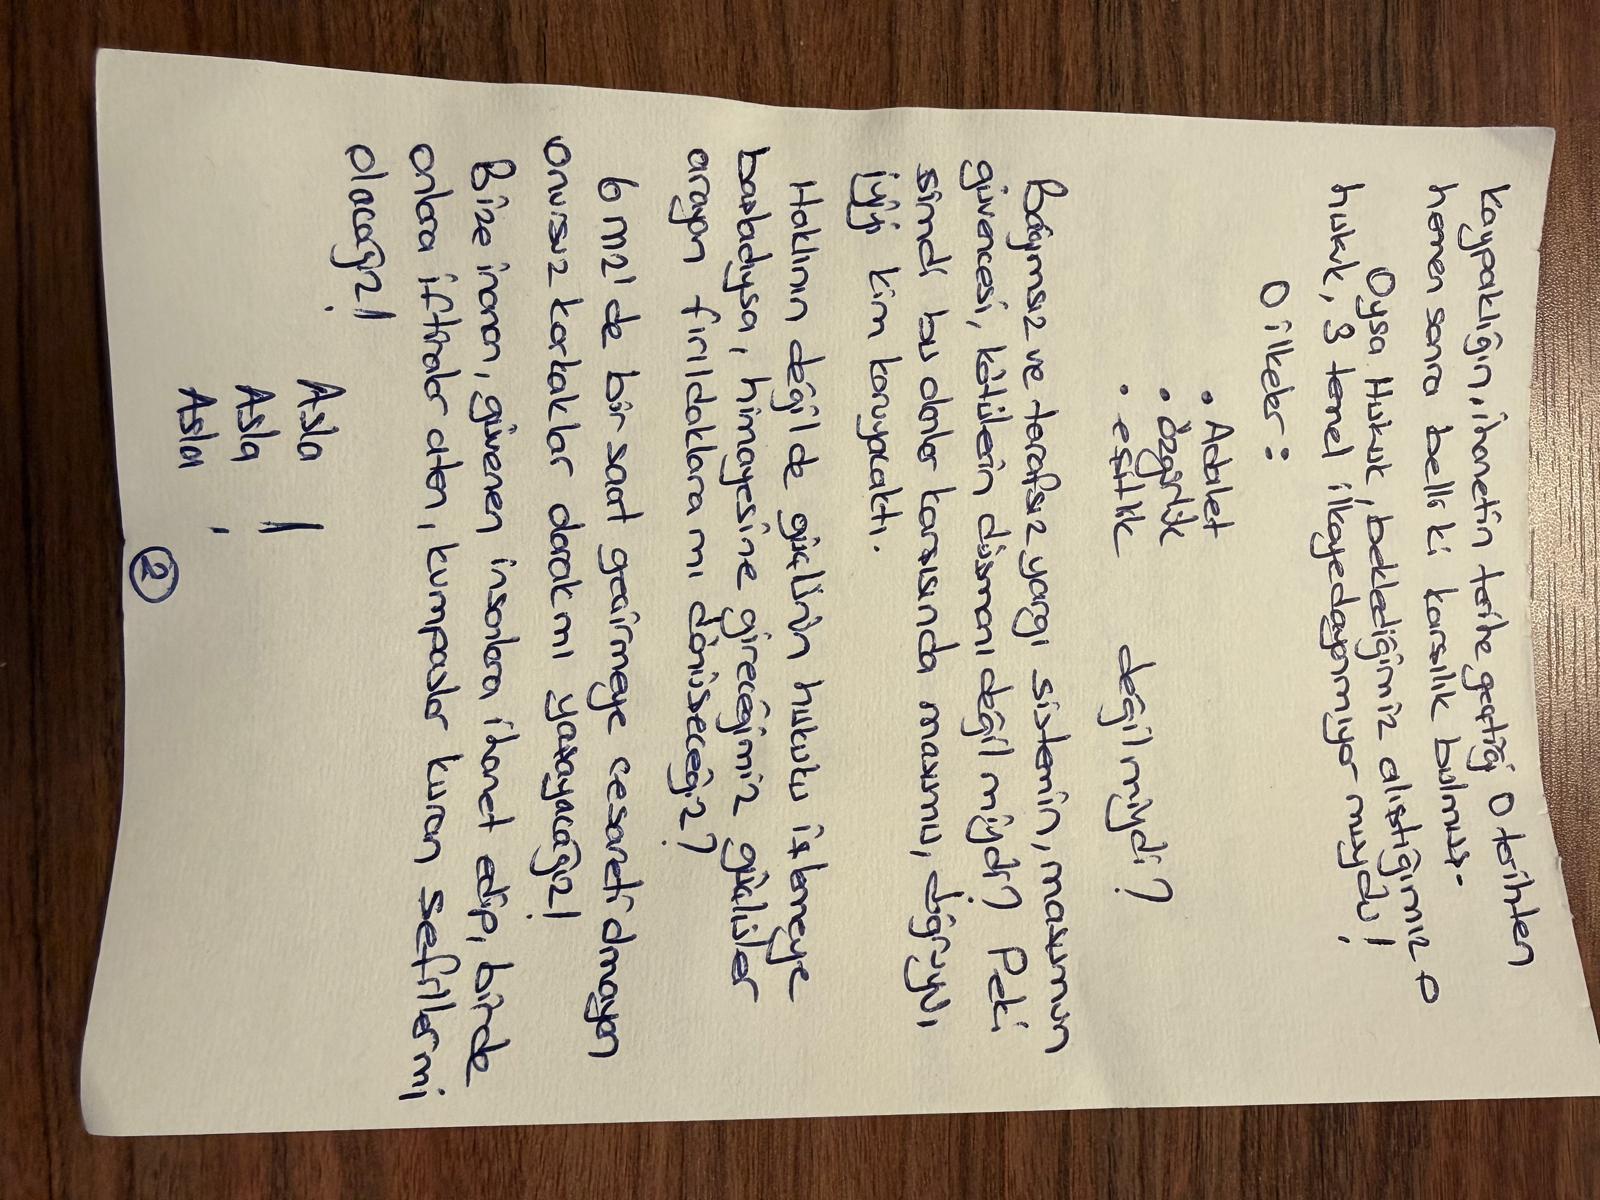 Kaypaklığın, ihanetin tarihe geçtiği o tarihten
hemen sonra belli ki karşılık bulmuş.
Oysa Hukuk, beklediğimiz alıştığımız o
hukuk, 3 temel ilkeye dayanmıyor muydu!
O ilkeler:
• Adalet
• özgürlük
• eşitlik değil miydi?
Bağımsız ve tarafsız yargı sistemin, masumun
güvencesi, kötülerin düşmanı değil miydi? Peki
şimdi bu olanlar karşısında masumu, doğruyu,
iyiyi kim koruyacaktı.
Haklının değil de güçlünün hukuku işlemeye
başladıysa, himayesine gireceğimiz güçlüler
arayan fırıldaklara mı dönüşeceğiz?
6 m2'de bir saat geçirmeye cesareti olmayan
onursuz korkaklar olarak mı yaşayacağız!
Bize inanan, güvenen insanlara ihanet edip, birde
onlara iftiralar atan, kumpaslar kuran sefiller mi
olacağız!
Asla
Asla !
Asla !
2